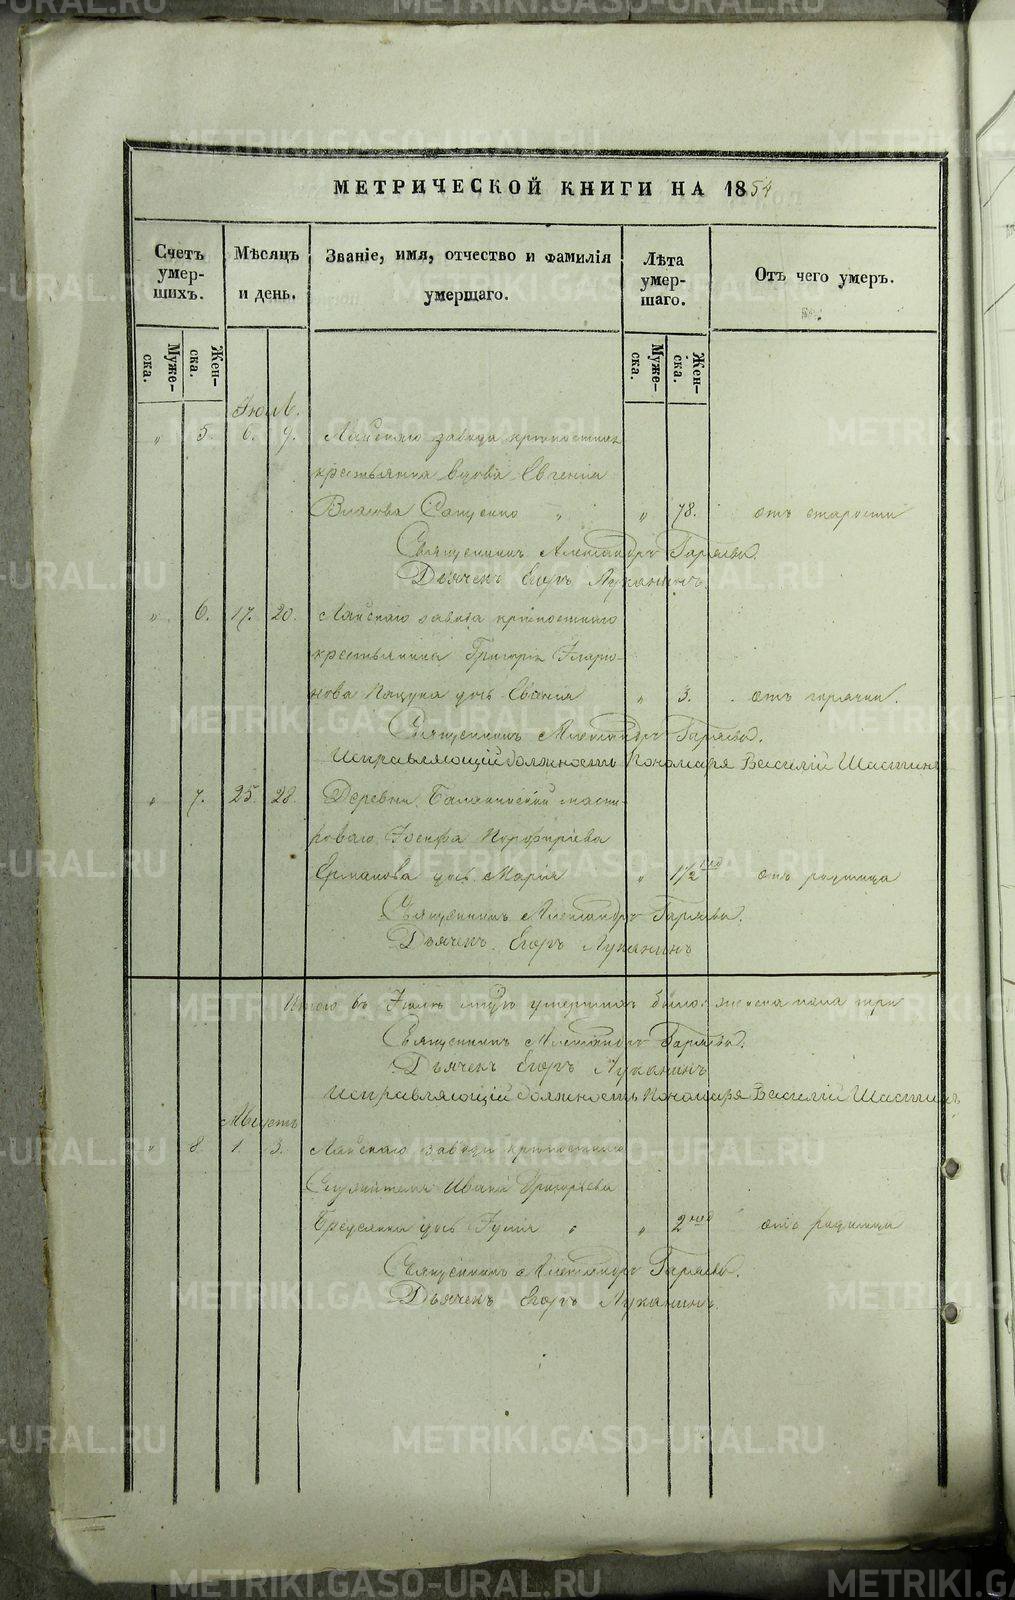 МЕТРИЧЕСКОЙ КНИГИ НА 1854
Счетъ умер- шихъ.
Мѣсяцъ и день.
Званіе, имя, отчество и фамилія умершаго.
Лѣта умер- шаго.
Отъ чего умеръ.
Муже- ска.
Жен- ска.
Муже- ска.
Жен- ска.
Іюль.
„ 5. 6. 9. Лайскаго завода крѣпостная
крестьянка вдова Евгенія
Власова Сащенко „ „ 78. отъ старости
Священникъ Александръ Гаряевъ.
Дьячекъ Егоръ Луканинъ.
„ 6. 17. 20. Лайскаго завода крѣпостнаго
крестьянина Григорія Иларіо-
нова дочь „ 3. отъ горячки.
Священникъ Александръ Гаряевъ.
Исправляющій должность Пономаря Василій Шастинъ
„ 7. 25. 28. Деревни Балакинской масте-
роваго Іосифа Порфиріева
Ермакова дочь Марія „ 1½ отъ родимца
Священникъ Александръ Гаряевъ.
Дьячекъ Егоръ Луканинъ
Итого въ Іюлѣ умершихъ было: женска пола три
Священникъ Александръ Гаряевъ.
Дьячекъ Егоръ Луканинъ
Исправляющій должность Пономаря Василій Шастинъ
Августъ
„ 8 1. 3. Лайскаго завода крѣпостнаго
Служителя Ивана Григорьева
дочь „ „ 2 нед отъ родимца
Священникъ Александръ Гаряевъ.
Дьячекъ Егоръ Луканинъ.
METRIKI.GASO-URAL.RU